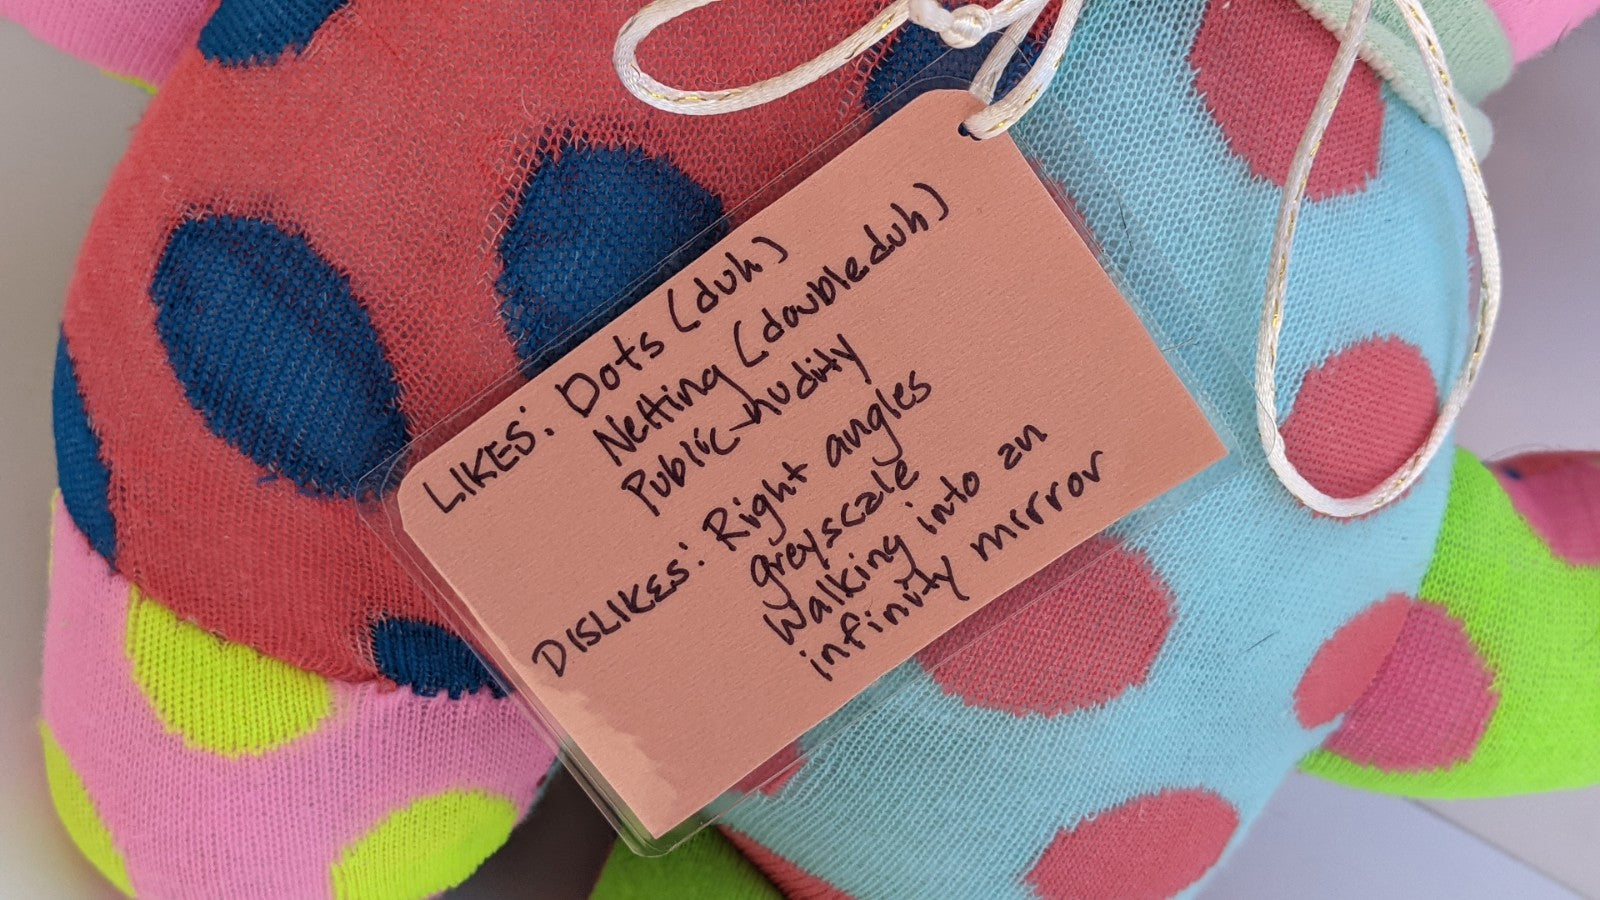 LIKES: Dots (duh)
Netting (double duh)
Public nudity
DISLIKES: Right angles
greyscale
Walking into an
infinity mirror